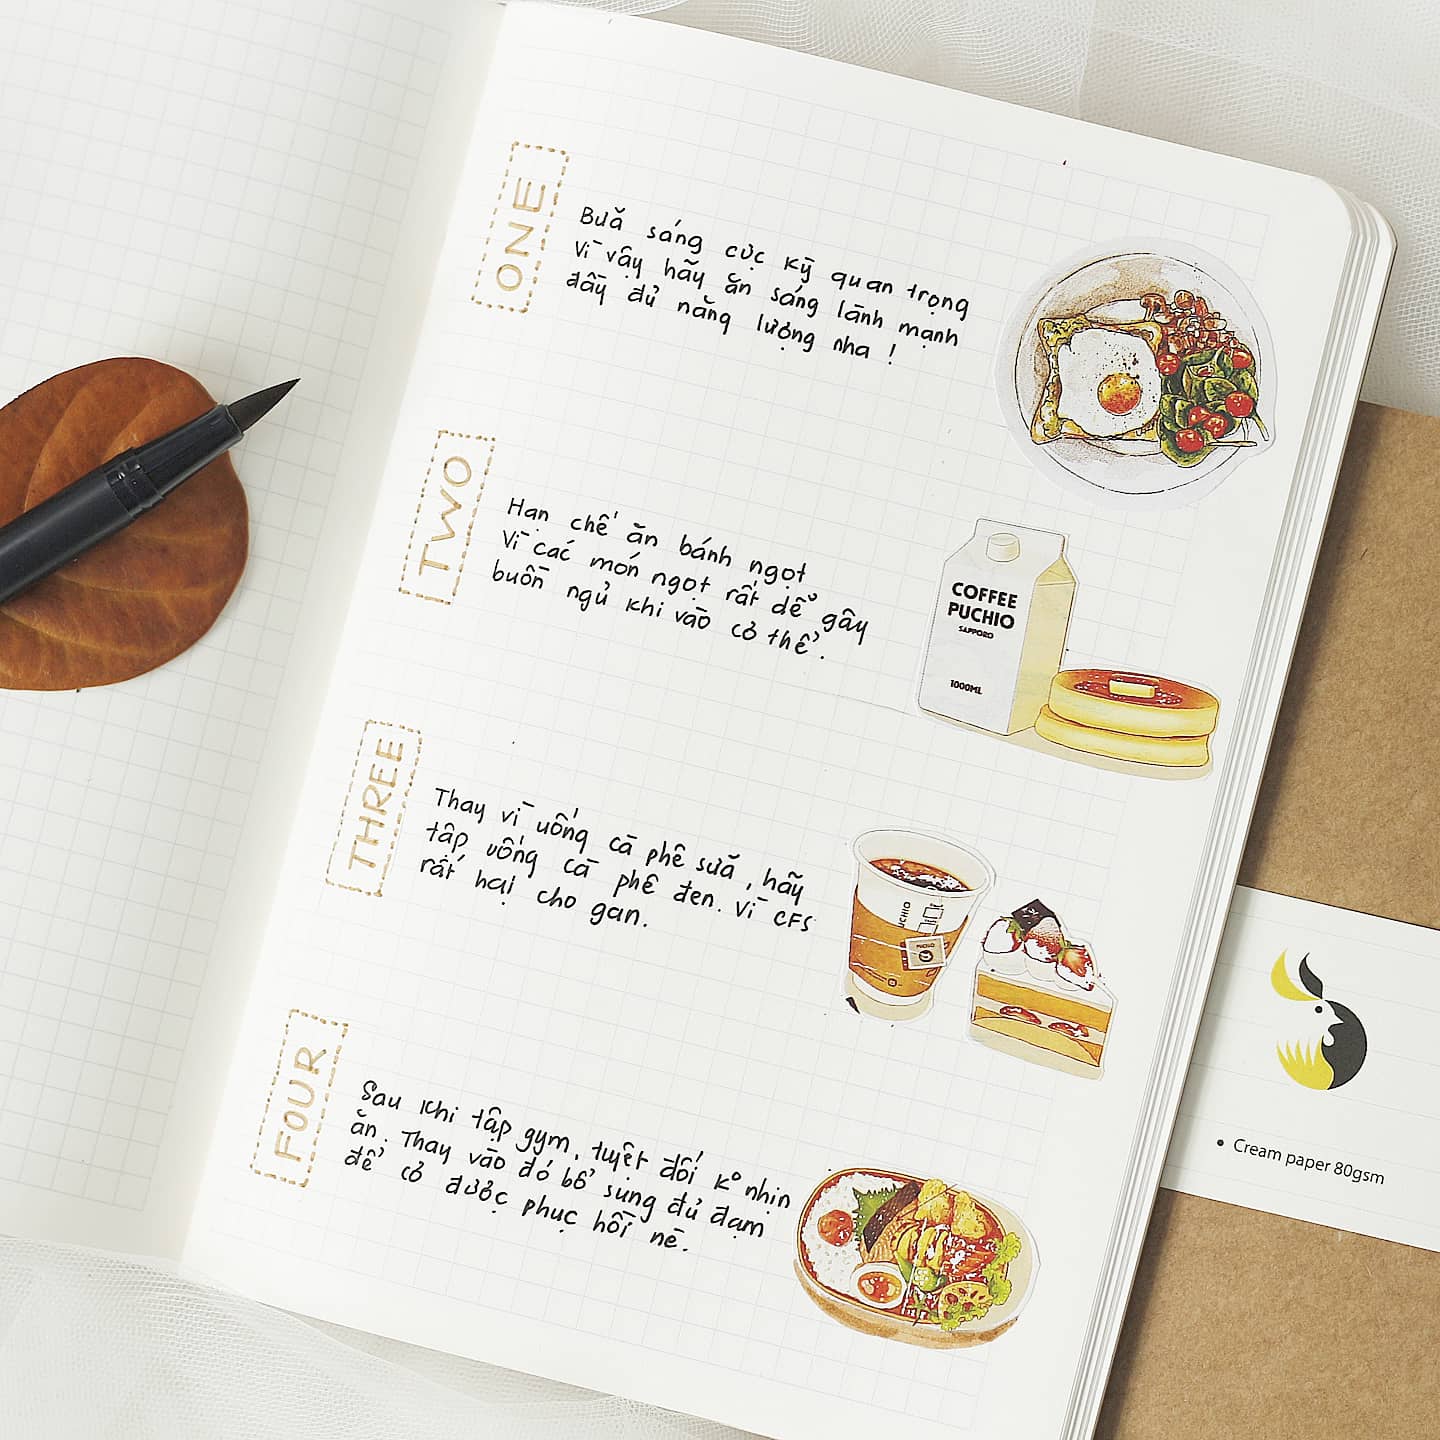 ONE
Bữa sáng cực kỳ quan trọng
Vì vậy hãy ăn sáng lành mạnh
đầy đủ năng lượng nha !
TWO
Hạn chế ăn bánh ngọt
Vì các món ngọt rất dễ gây
buồn ngủ khi vào cơ thể.
COFFEE
PUCHIO
SAPPORO
1000ML
THREE
Thay vì uống cà phê sữa, hãy
tập uống cà phê đen. Vì CFS
rất hại cho gan.
PUCHIO
FOUR
Sau khi tập gym, tuyệt đối k° nhịn
ăn. Thay vào đó bổ sung đủ đạm
để cơ được phục hồi nè.
• Cream paper 80gsm